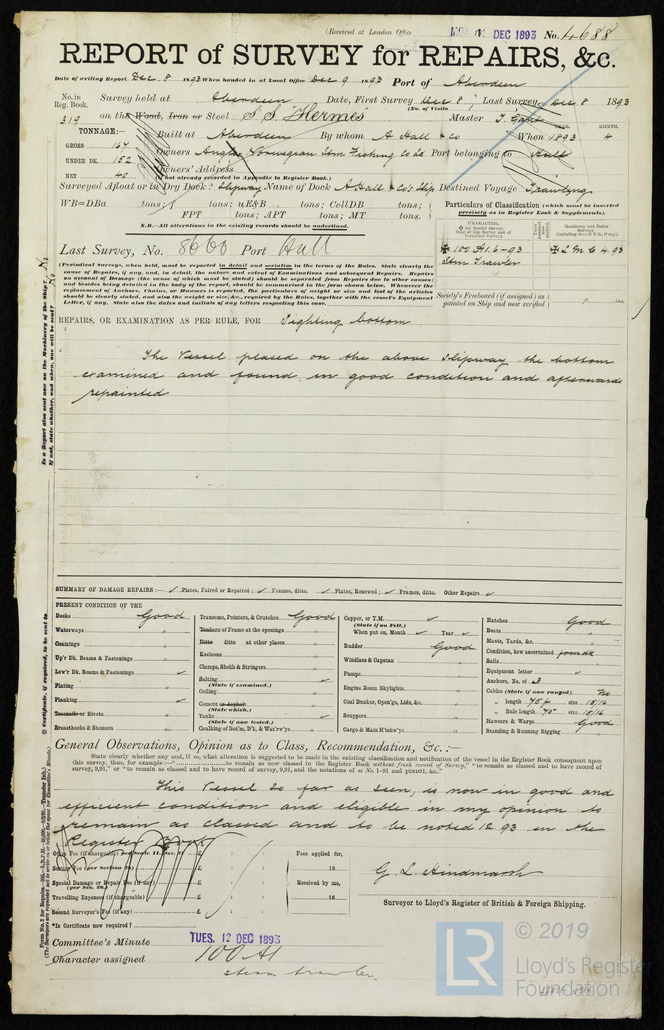 (Received at London Office MON 11 DEC 1893 No. 4688
REPORT of SURVEY for REPAIRS, &c.
Date of writing Report Dec 8 1893 When handed in at Local Office Dec 9 1893 Port of Aberdeen
No. in Reg. Book. Survey held at Aberdeen Date, First Survey Dec 8 Last Survey Dec 8 1893
(No. of Visits
319 on the Wood, Iron or Steel S S "Hermes" Master
TONNAGE:— Built at Aberdeen By whom A Hall & Co When 1893 YEAR. MONTH. 4
GROSS 164
UNDER DK. 152 Owners Anglo Norwegian Stm Fishing Co Ld Port belonging to Hull
NET 40 Owners' Address
(if not already recorded in Appendix to Register Book.)
Surveyed Afloat or in Dry Dock? Slipway Name of Dock A Hall & Co's Slip Destined Voyage Trawling
WB=DBa tons; f tons; uE&B tons; CellDB tons;
FPT tons; APT tons; MT tons.
N.B.—All alterations in the existing records should be underlined.
Particulars of Classification (which must be inserted precisely as in Register Book & Supplements).
CHARACTER.
Machinery and Boiler Surveys
✠ 100 A1 6-93 ✠ L M C 4 93
Stm Trawler
Last Survey, No. 8660 Port Hull
Society's Freeboard (if assigned) as painted on Ship and now verified ft. ins.
(Periodical Surveys, when held, must be reported in detail and seriatim in the terms of the Rules. State clearly the
cause of Repairs, if any, and, in detail, the nature and extent of Examinations and subsequent Repairs. Repairs
on account of Damage (the cause of which must be stated) should be separated from Repairs due to other causes;
and besides being detailed in the body of the report, should be summarised in the form shown below. Whenever the
replacement of Anchors, Chains, or Hawsers is reported, the particulars of weight or size and test of the articles
should be clearly stated, and also the weight or size, &c., required by the Rules, together with the vessel's Equipment
Letter, if any. State also the dates and initials of any letters respecting this case.
REPAIRS, OR EXAMINATION AS PER RULE, FOR Sighting bottom
The Vessel placed on the above slipway the bottom
examined and found in good condition and afterwards
repainted
SUMMARY OF DAMAGE REPAIRS:— ✓ Plates, Faired or Repaired; ✓ Frames, ditto. ✓ Plates, Renewed; ✓ Frames, ditto. Other Repairs ✓
PRESENT CONDITION OF THE
Decks Good
Waterways "
Coamings "
Up'r Dk. Beams & Fastenings "
Low'r Dk. Beams & Fastenings ✓
Plating "
Planking ✓
Treenails or Rivets "
Breasthooks & Stemson "
Transoms, Pointers, & Crutches Good
Timbers of Frame at the openings "
Ditto ditto at other places "
Keelsons "
Clamps, Shelfs & Stringers "
Salting ✓
(State if examined.)
Ceiling "
Cement or Asphalt "
(State which.)
Tanks ✓
(State if now tested.)
Caulking of Bot'm, D'k, & Wat'rw'ys "
Copper, or Y.M. ✓
(State if on Felt.)
When put on, Month ✓ Year ✓
Rudder Good
Windlass & Capstan "
Pumps "
Engine Room Skylights "
Coal Bunker, Open'gs, Lids, &c. "
Scuppers "
Cargo & Main H'tchw'ys "
Hatches Good
Boats "
Masts, Yards, &c. "
Condition, how ascertained from dk
Sails "
Equipment letter ✓
Anchors, No. of 3
Cables (State if now ranged) No
" length size 15/16
" Rule length size 15/16
Hawsers & Warps Good
Standing & Running Rigging "
General Observations, Opinion as to Class, Recommendation, &c.:—
State clearly whether any, and if so, what alteration is suggested to be made in the existing classification and notification of the vessel in the Register Book consequent upon
this survey, thus, for example:—"..........to remain as now classed in the Register Book without fresh record of Survey," "to remain classed and to have record of
survey, 9,91," or "to remain classed and to have record of survey, 9,91, and the notations of
This Vessel so far as seen, is now in good and
efficient condition and eligible in my opinion to
remain as classed and to be noted 12.93 in the
Register Book
Office Fee (if chargeable) per Scale II. £ : : Fees applied for,
Survey Fee (per Section 28) £ : : 18
Special Damage or Repair Fee (if any) £ : : Received by me,
(per Sec. 28.)
Travelling Expenses (if chargeable) £ : : 18
Second Surveyor's Fee (if any) £ : :
*Is Certificate now required?
G L Hindmarsh
Surveyor to Lloyd's Register of British & Foreign Shipping.
Committee's Minute TUES. 12 DEC 1893
Character assigned 100 A1
steam trawler.
LR © 2019
Lloyd's Register
Foundation